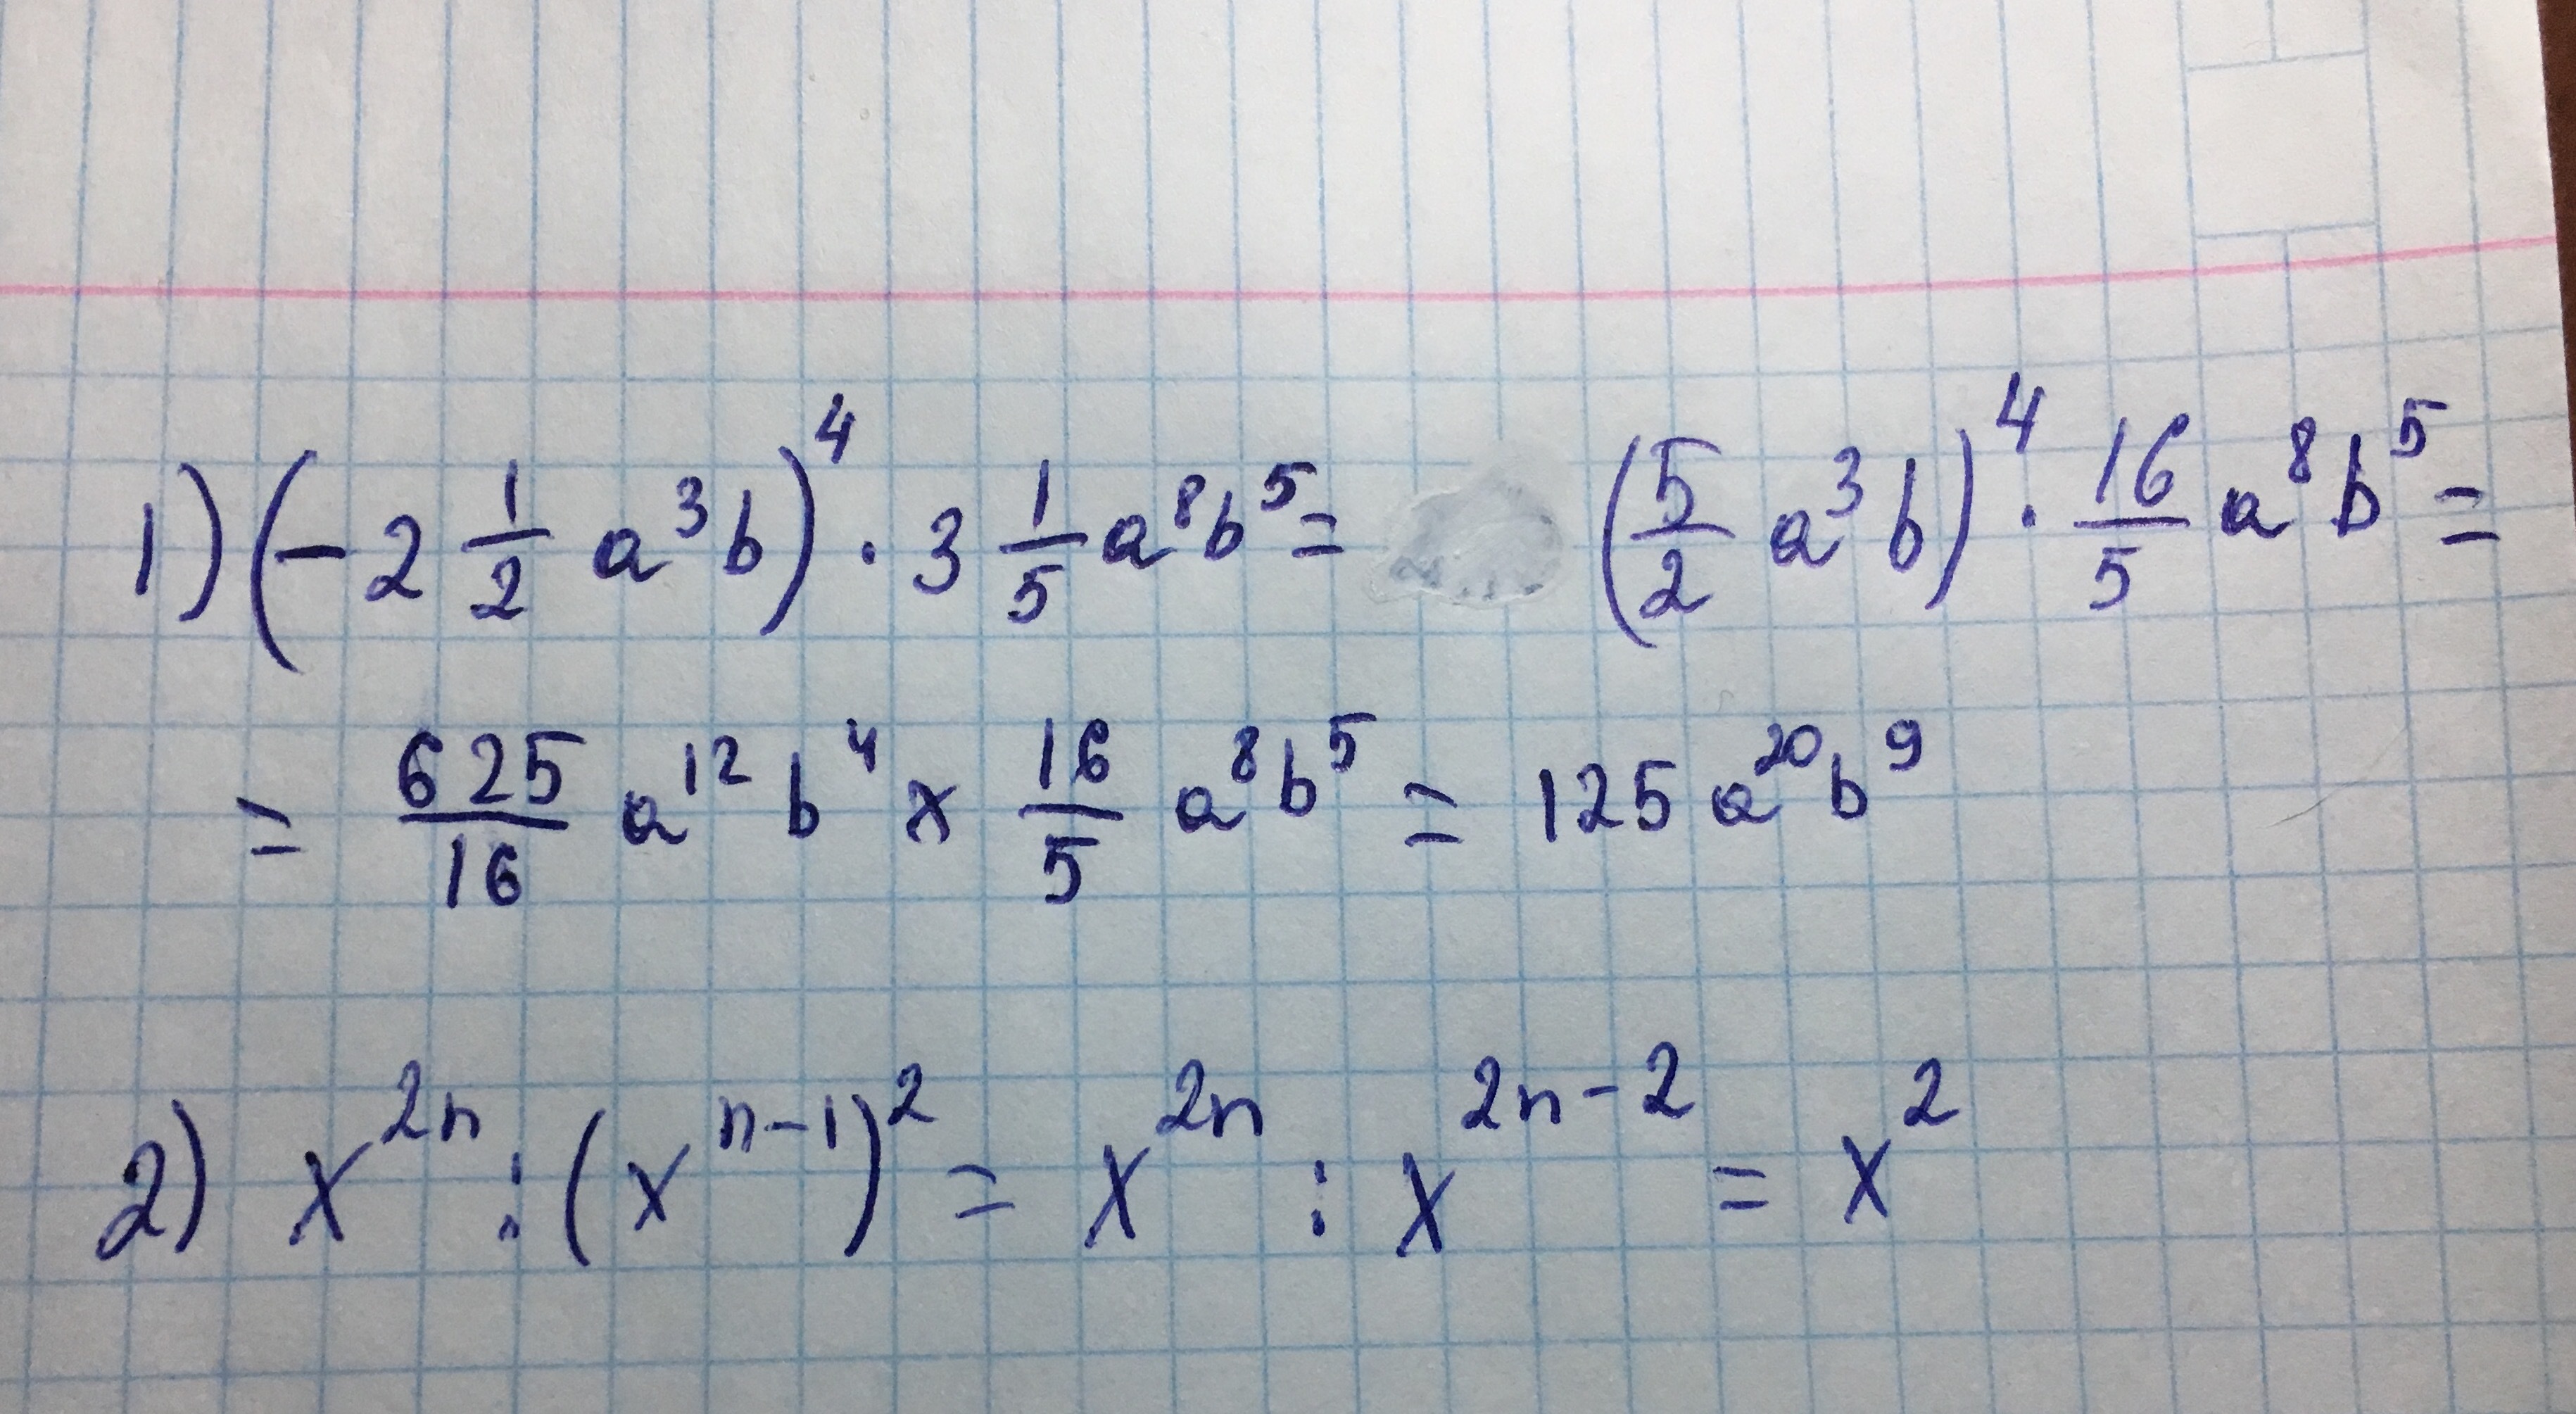 1) (-2 1/2 a³b)⁴ · 3 1/5 a⁸b⁵ = (5/2 a³b)⁴ · 16/5 a⁸b⁵ =
= 625/16 a¹²b⁴ x 16/5 a⁸b⁵ = 125a²⁰b⁹
2) x²ⁿ : (xⁿ⁻¹)² = x²ⁿ : x²ⁿ⁻² = x²